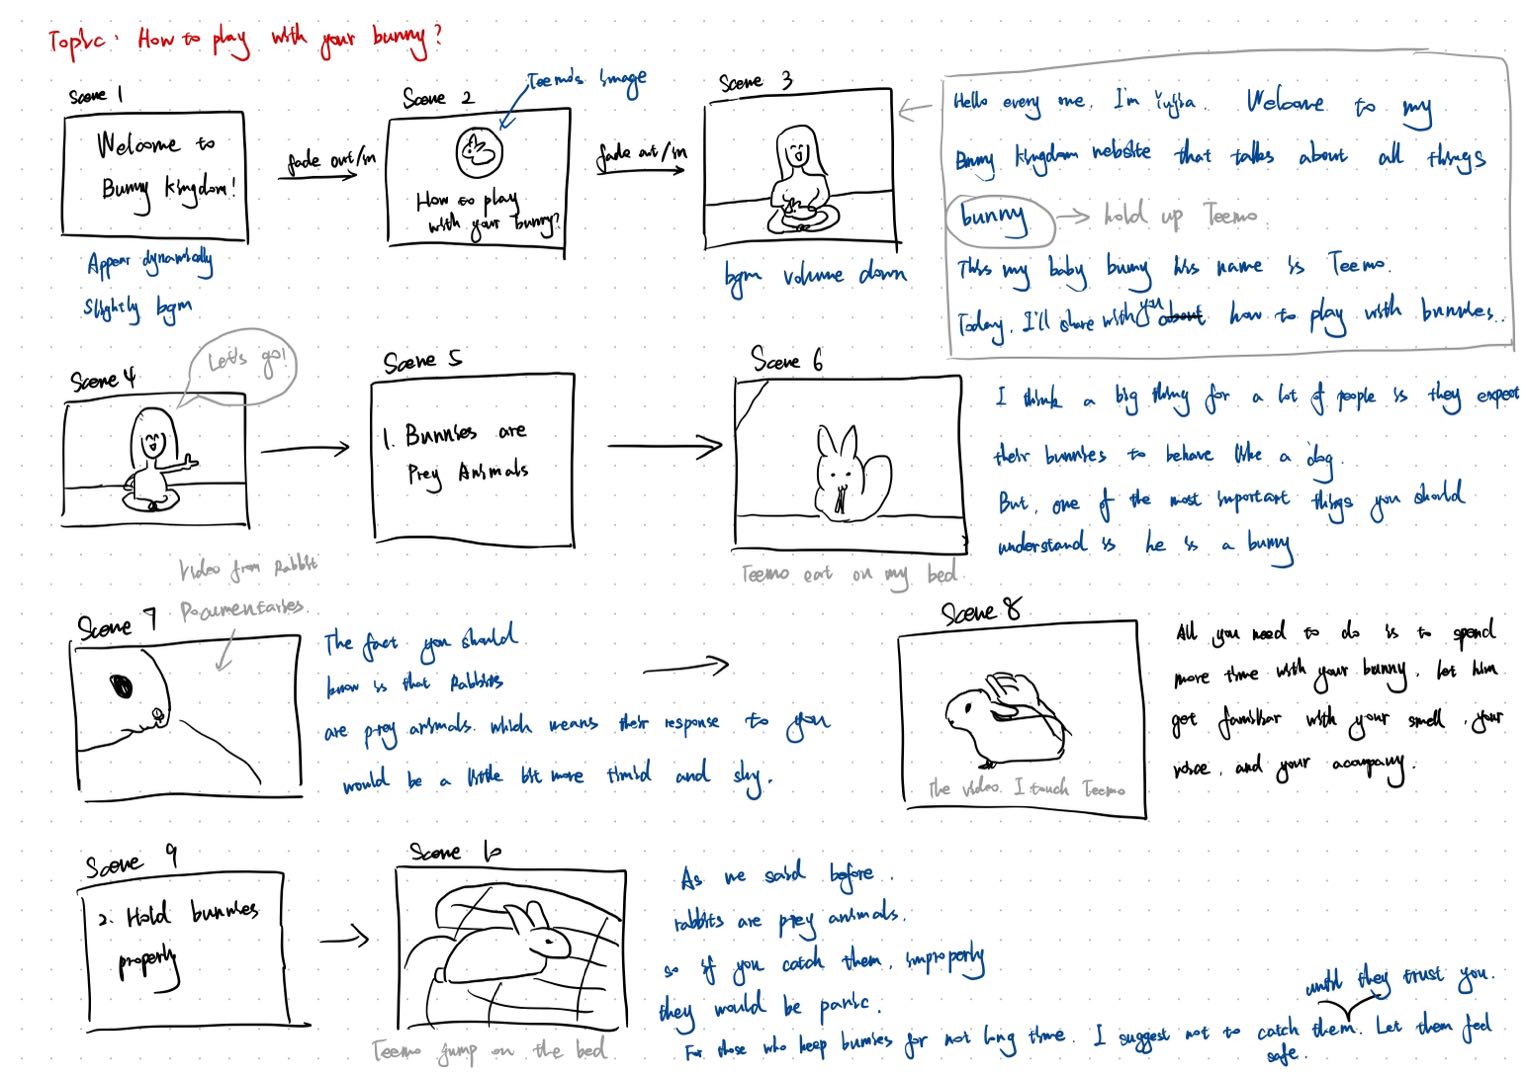 Topic: How to play with your bunny?
Scene 1
Welcome to
Bunny Kingdom!
Appear dynamically
Slightly bgm
fade out/in
Scene 2
Teemo's image
How to play
with your bunny?
fade out/in
Scene 3
bgm volume down
Hello every one, I'm Welcome to my
Bunny Kingdom website that talks about all things
bunny → hold up Teemo
This my baby bunny his name is Teemo.
Today, I'll share with you about how to play with bunnies..
Scene 4
Let's go!
Scene 5
1. Bunnies are
Prey Animals
Scene 6
Teemo eat on my bed.
I think a big thing for a lot of people is they expect
their bunnies to behave like a dog.
But, one of the most important things you should
understand is he is a bunny
Scene 7
Video from Rabbit
Documentaries.
The fact you should
know is that Rabbits
are prey animals. which means their response to you
would be a little bit more timid and shy.
Scene 8
the video I touch Teemo
All you need to do is to spend
more time with your bunny. let him
get familiar with your smell, your
voice, and your accompany.
Scene 9
2. Hold bunnies
properly
Scene 10
Teemo jump on the bed.
As we said before,
rabbits are prey animals.
so if you catch them improperly
they would be panic.
For those who keep bunnies for not long time. I suggest not to catch them. Let them feel
until they trust you.
safe.